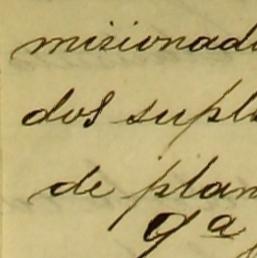 misionad
dos supl
de plan
9ª